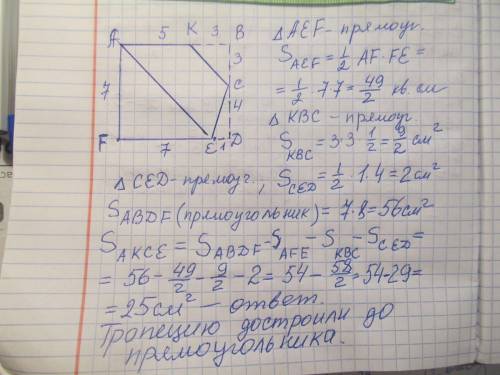 A 5 K 3 B
3
C
7
4
F 7 E 1 D
△ AEF - прямоуг.
S AEF = 1/2 AF · FE =
= 1/2 · 7·7 = 49/2 кв. см
△ KBC - прямоуг.
S KBC = 3·3 · 1/2 = 9/2 см²
△ CED - прямоуг., S CED = 1/2 · 1·4 = 2 см²
S ABDF (прямоугольник) = 7·8 = 56 см²
S AKCE = S ABDF - S AFE - S KBC - S CED =
= 56 - 49/2 - 9/2 - 2 = 54 - 58/2 = 54 - 29 =
= 25 см² — ответ.
Тропецию достроили до
прямоугольника.